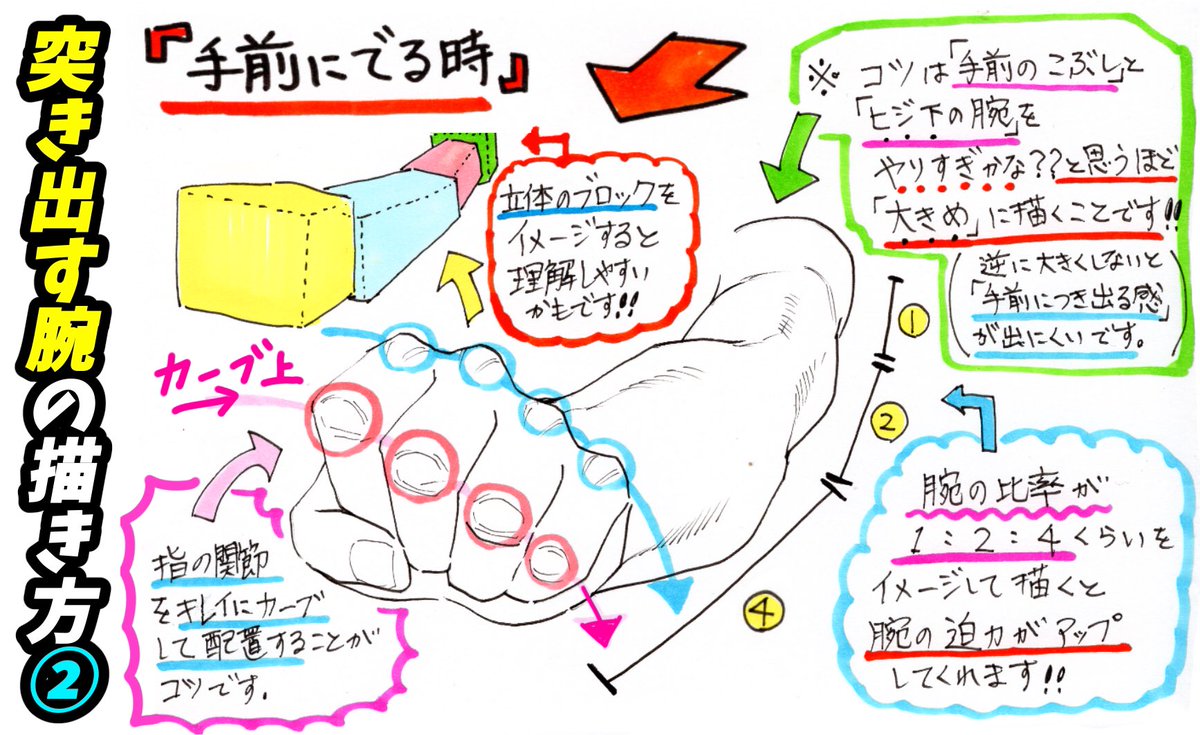 突き出す腕の描き方②
『手前にでる時』
※ コツは「手前のこぶし」と
「ヒジ下の腕」を
やりすぎかな??と思うほど
「大きめ」に描くことです!!
(逆に大きくしないと
「手前につき出る感」
が出にくいです。)
立体のブロックを
イメージすると
理解しやすい
かもです!!
カーブ上
①
②
④
指の関節
をキレイにカーブ
して配置することが
コツです.
腕の比率が
1:2:4くらいを
イメージして描くと
腕の迫力がアップ
してくれます!!